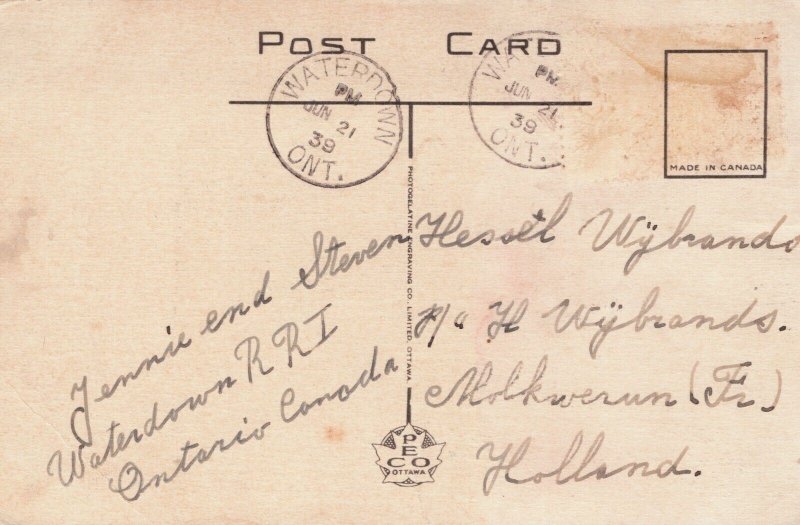 POST CARD
WATERDOWN
PM
JUN 21
39
ONT.
WATE
PM
JUN 21
39
ONT.
MADE IN CANADA
PHOTOGELATINE ENGRAVING CO. LIMITED, OTTAWA.
Jennie end Steven
Waterdown R R I
Ontario Canada
Hessel Wÿbrands
P/o H Wÿbrands.
Molkwerun (Fr.)
Holland.
PECO
OTTAWA